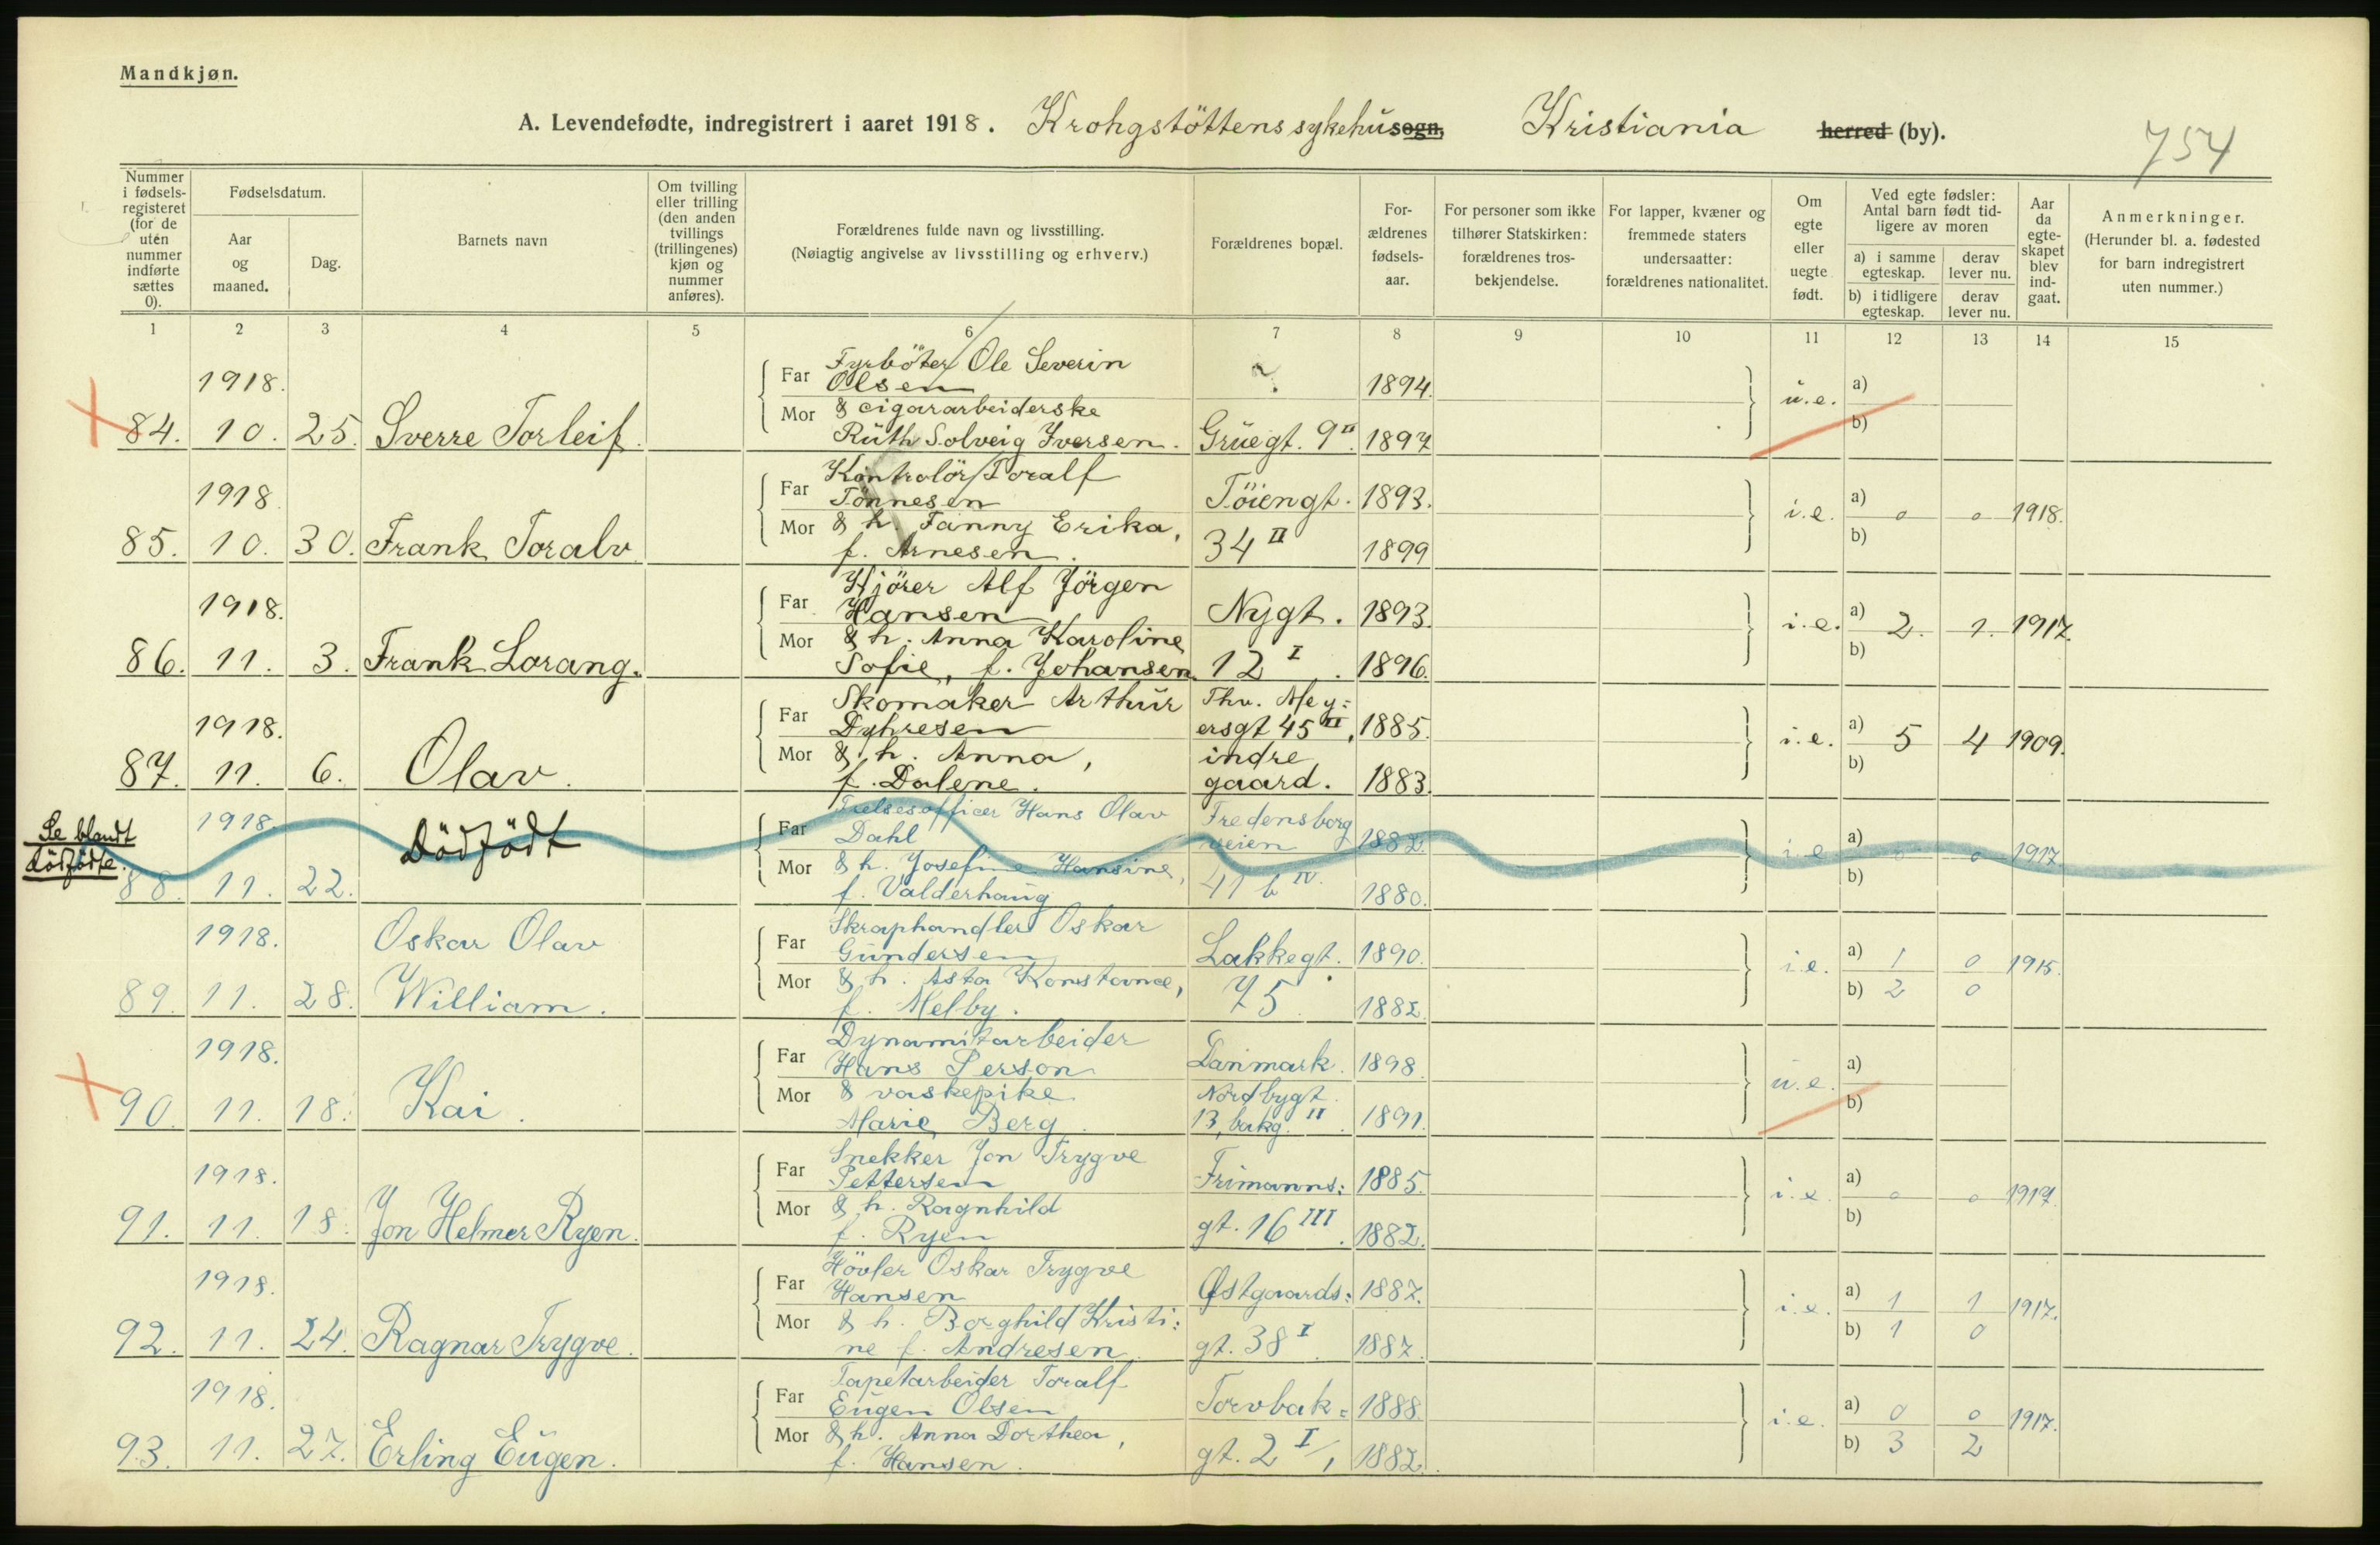 Mandkjøn.
A. Levendefødte, indregistrert i aaret 1918. Krohgstöttens sykehus sogn, Kristiania herred (by).
754
Nummer i fødselsregisteret (for de uten nummer indførte sættes 0).
Fødselsdatum.
Aar og maaned.
Dag.
Barnets navn
Om tvilling eller trilling (den anden tvillings (trillingenes) kjøn og nummer anføres).
Forældrenes fulde navn og livsstilling.
(Nøiagtig angivelse av livsstilling og erhverv.)
Forældrenes bopæl.
Forældrenes fødselsaar.
For personer som ikke tilhører Statskirken: forældrenes trosbekjendelse.
For lapper, kvæner og fremmede staters undersaatter: forældrenes nationalitet.
Om egte eller uegte født.
Ved egte fødsler: Antal barn født tidligere av moren
a) i samme egteskap.
derav lever nu.
b) i tidligere egteskap.
derav lever nu.
Aar da egteskapet blev indgaat.
Anmerkninger.
(Herunder bl. a. fødested for barn indregistrert uten nummer.)
1 2 3 4 5 6 7 8 9 10 11 12 13 14 15
1918.
84. 10. 25. Sverre Torleif.
Far Fyrböter Ole Severin Olsen ? 1894.
Mor & cigararbeiderske Ruth Solveig Iversen. Grüegt. 9 II. 1897
u.e. a) b)
1918
85. 10. 30. Frank Toralv
Far Kontrolör Toralf Tönnesen Töiengt. 1893.
Mor & h. Fanny Erika, f. Arnesen. 34 II 1899
i.e. a) 0 0 1918.
b)
1918.
86. 11. 3. Frank Lorang.
Far Kjörer Alf Jörgen Hansen Nygt. 1893.
Mor & h. Anna Karoline Sofie, f. Johansen. 12 I. 1896.
i.e. a) 2. 1. 1917.
b)
1918.
87. 11. 6. Olav.
Far Skomaker Arthur Dyhresen Thv. Mey=ersgt 45 II, 1885.
Mor & h. Anna, f. Dalene. indre gaard. 1883.
i.e. a) 5 4 1909.
b)
Se blandt dödfödte.
1918.
88. 11. 22. Dödfödt
Far Frelsesofficer Hans Olav Dahl Fredensborgveien 1882.
Mor & h. Josefine Hansine, f. Valderhaug 41 b IV. 1880.
i.e a) 0 0 1917
b)
1918.
89. 11. 28. Oskar Olav William.
Far Skraphandler Oskar Gundersen Lakkegt. 1890.
Mor & h. Asta Konstance, f. Melby. 75 1882.
i.e. a) 1 0 1915.
b) 2 0
1918.
90. 11. 18. Kai.
Far Dynamitarbeider Hans Person Danmark. 1898.
Mor & vaskepike Marie Berg. Nordbygt. 13, bakg. II. 1891.
u.e. a) b)
1918.
91. 11. 18. Jon Helmer Ryen.
Far Snekker Jon Trygve Pettersen Frimanns: 1885.
Mor & h. Ragnhild f. Ryen gt. 16 III. 1882.
i.e. a) 0 0 1917
b)
1918.
92. 11. 24. Ragnar Trygve.
Far Hövler Oskar Trygve Hansen Østgaards: 1887.
Mor & h. Borghild Kristi: ne f. Andresen gt. 38 I. 1887.
i.e. a) 1 1 1917.
b) 1 0
1918.
93. 11. 27. Erling Eugen.
Far Tapetarbeider Toralf Eugen Olsen Torvbak= 1888.
Mor & h. Anna Dorthea, f. Hansen. gt. 2 I/1 1882.
i.e. a) 0 0 1917.
b) 3 2